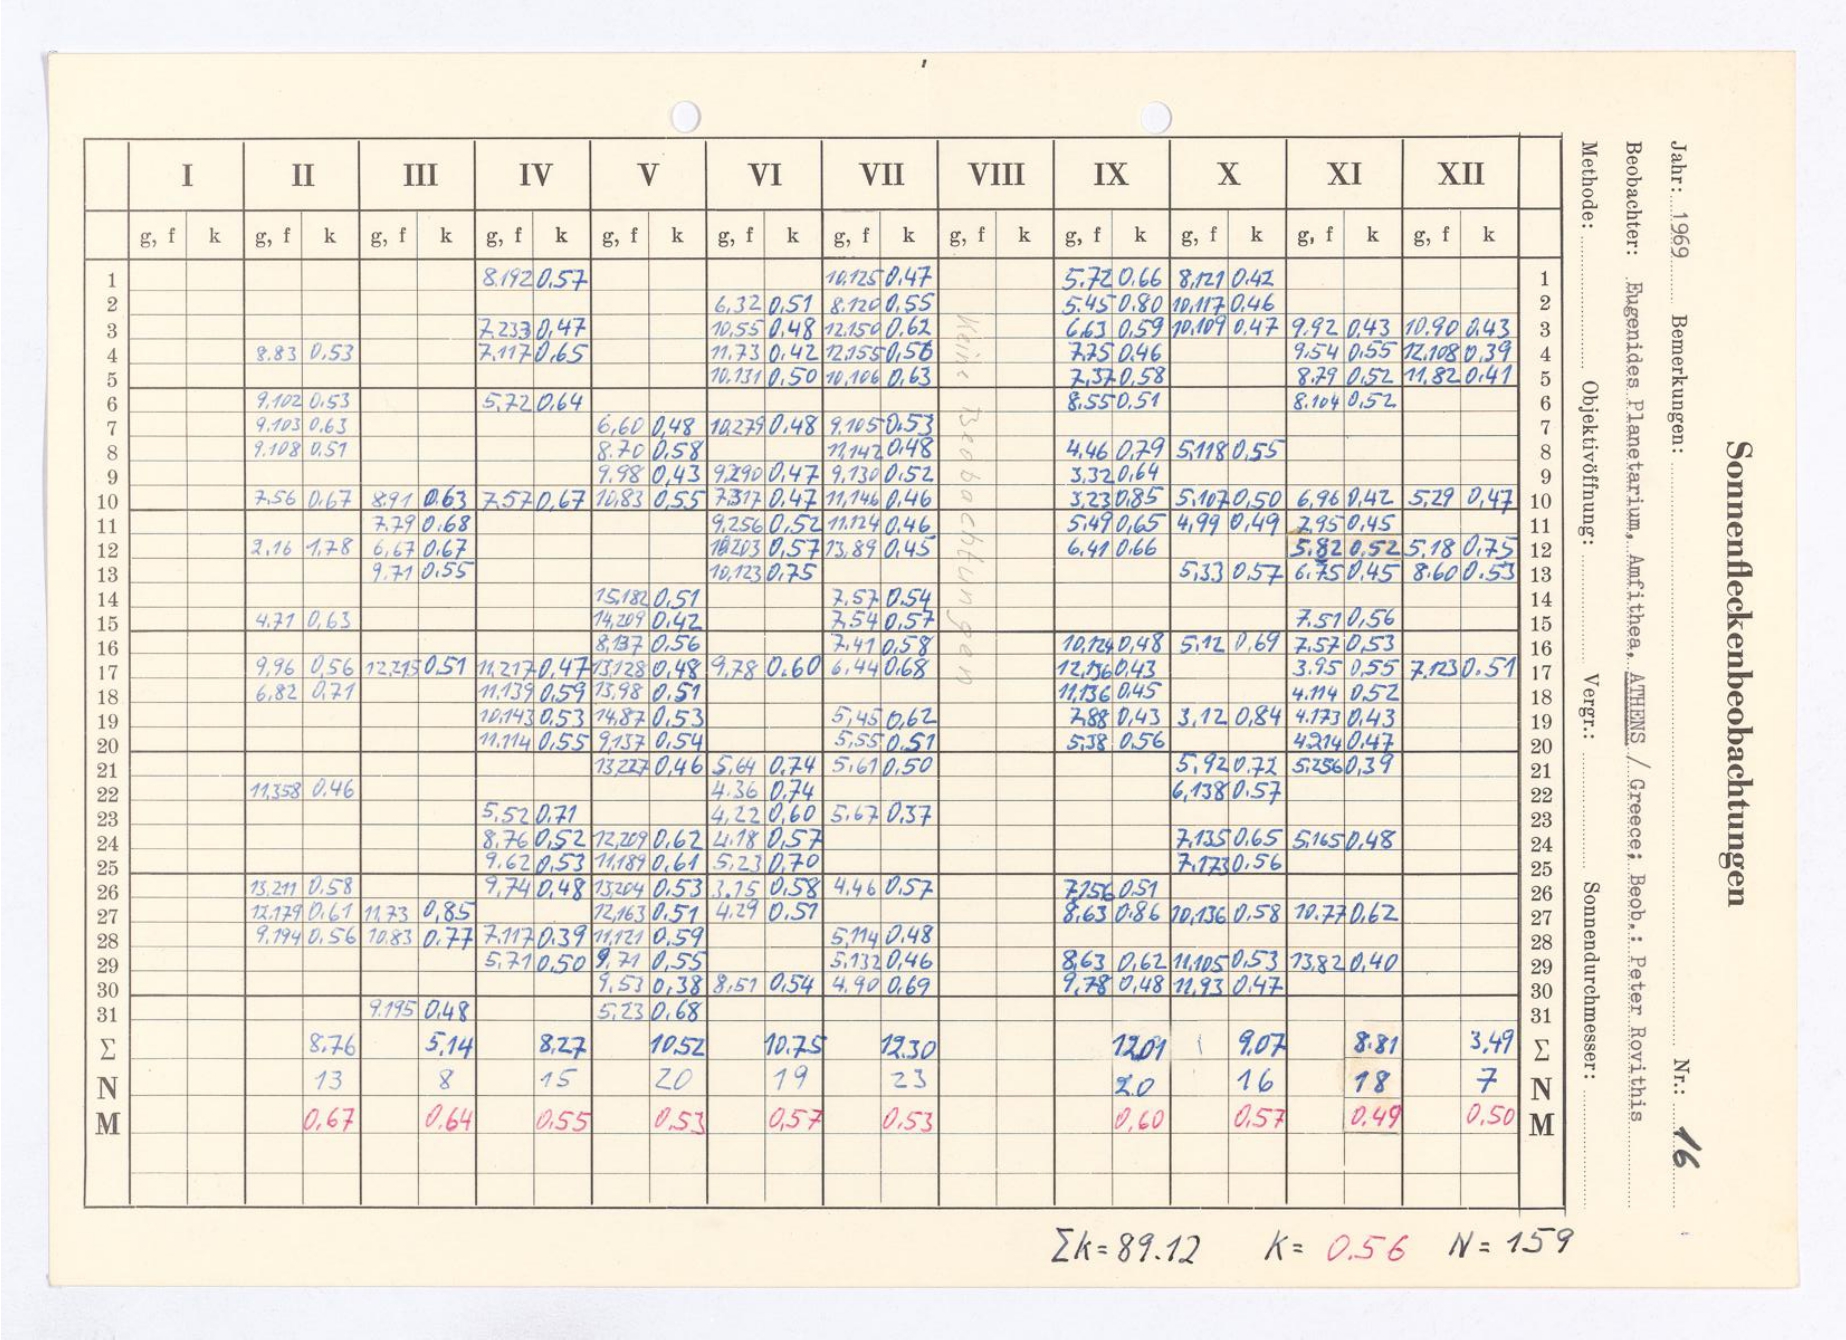 Sonnenfleckenbeobachtungen
Jahr: 1969 Bemerkungen: Nr.: 16
Beobachter: Eugenides Planetarium, Amfithea, ATHENS / Greece; Beob.: Peter Rovithis
Methode: Objektivöffnung: Vergr.: Sonnendurchmesser:
I II III IV V VI VII VIII IX X XI XII
g, f k g, f k g, f k g, f k g, f k g, f k g, f k g, f k g, f k g, f k g, f k g, f k
1 8.192 0.57 10.125 0.47 5.72 0.66 8.121 0.42 1
2 6.32 0.51 8.120 0.55 5.45 0.80 10.117 0.46 2
3 7.233 0.47 10.55 0.48 12.150 0.62 6.63 0.59 10.109 0.47 9.92 0.43 10.90 0.43 3
4 8.83 0.53 7.117 0.65 11.73 0.42 12.155 0.56 7.75 0.46 9.54 0.55 12.108 0.39 4
5 10.131 0.50 10.106 0.63 7.37 0.58 8.79 0.52 11.82 0.41 5
6 9.102 0.53 5.72 0.64 8.55 0.51 8.104 0.52 6
7 9.103 0.63 6.60 0.48 10.279 0.48 9.105 0.53 7
8 9.108 0.51 8.70 0.58 11.142 0.48 4.46 0.79 5.118 0.55 8
9 9.98 0.43 9.290 0.47 9.130 0.52 3.32 0.64 9
10 7.56 0.67 8.91 0.63 7.57 0.67 10.83 0.55 7.317 0.47 11.146 0.46 3.23 0.85 5.107 0.50 6.96 0.42 5.29 0.47 10
11 7.79 0.68 9.256 0.52 11.124 0.46 5.49 0.65 4.99 0.49 7.95 0.45 11
12 2.16 1.78 6.67 0.67 10.203 0.57 13.89 0.45 6.41 0.66 5.82 0.52 5.18 0.75 12
13 9.71 0.55 10.123 0.75 5.33 0.57 6.75 0.45 8.60 0.53 13
14 15.182 0.51 7.57 0.54 14
15 4.71 0.63 14.209 0.42 7.54 0.57 7.51 0.56 15
16 8.137 0.56 7.41 0.58 10.124 0.48 5.12 0.69 7.57 0.53 16
17 9.96 0.56 12.215 0.51 11.217 0.47 13.128 0.48 9.78 0.60 6.44 0.68 12.136 0.43 3.95 0.55 7.123 0.51 17
18 6.82 0.71 11.139 0.59 13.98 0.51 11.136 0.45 4.114 0.52 18
19 10.143 0.53 14.87 0.53 5.45 0.62 7.88 0.43 3.12 0.84 4.173 0.43 19
20 11.114 0.55 9.137 0.54 5.55 0.51 5.38 0.56 4.214 0.47 20
21 13.227 0.46 5.64 0.74 5.61 0.50 5.92 0.72 5.256 0.39 21
22 11.358 0.46 4.36 0.74 6.138 0.57 22
23 5.52 0.71 4.22 0.60 5.67 0.37 23
24 8.76 0.52 12.209 0.62 4.18 0.57 7.135 0.65 5.165 0.48 24
25 9.62 0.53 11.189 0.61 5.23 0.70 7.173 0.56 25
26 13.211 0.58 9.74 0.48 13.204 0.53 3.15 0.58 4.46 0.57 7.156 0.51 26
27 12.179 0.61 11.73 0.85 12.163 0.51 4.29 0.51 8.63 0.86 10.136 0.58 10.77 0.62 27
28 9.194 0.56 10.83 0.77 7.117 0.39 11.121 0.59 5.114 0.48 28
29 5.71 0.50 9.71 0.55 5.132 0.46 8.63 0.62 11.105 0.53 13.82 0.40 29
30 9.53 0.38 8.51 0.54 4.90 0.69 9.78 0.48 11.93 0.47 30
31 9.195 0.48 5.23 0.68 31
Keine Beobachtungen
Σ 8.76 5.14 8.27 10.52 10.75 12.30 12.01 9.07 8.81 3.49 Σ
N 13 8 15 20 19 23 20 16 18 7 N
M 0.67 0.64 0.55 0.53 0.57 0.53 0.60 0.57 0.49 0.50 M
Σk = 89.12 K = 0.56 N = 159